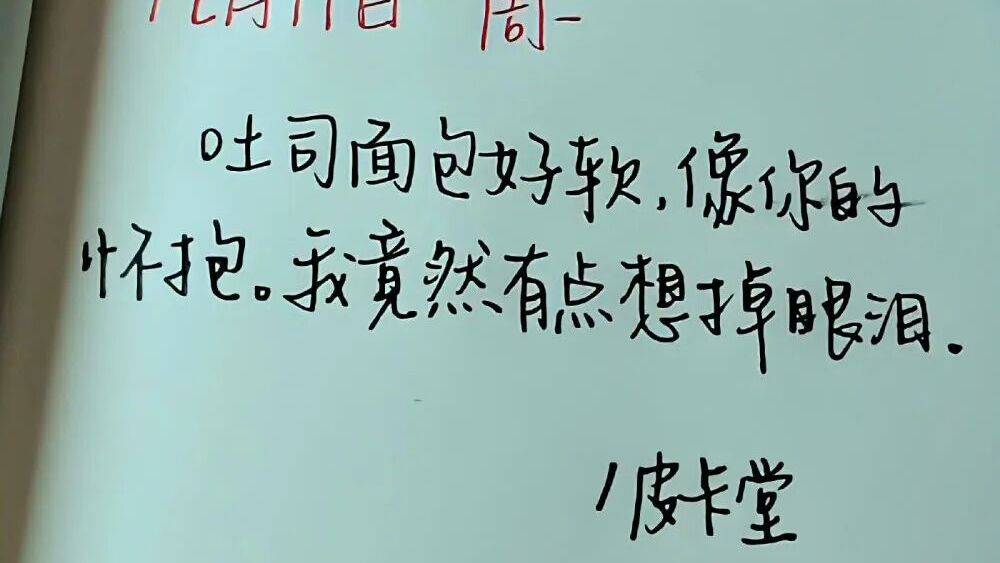 12月11日 周一
吐司面包好软,像你的
怀抱。我竟然有点想掉眼泪.
/皮卡堂